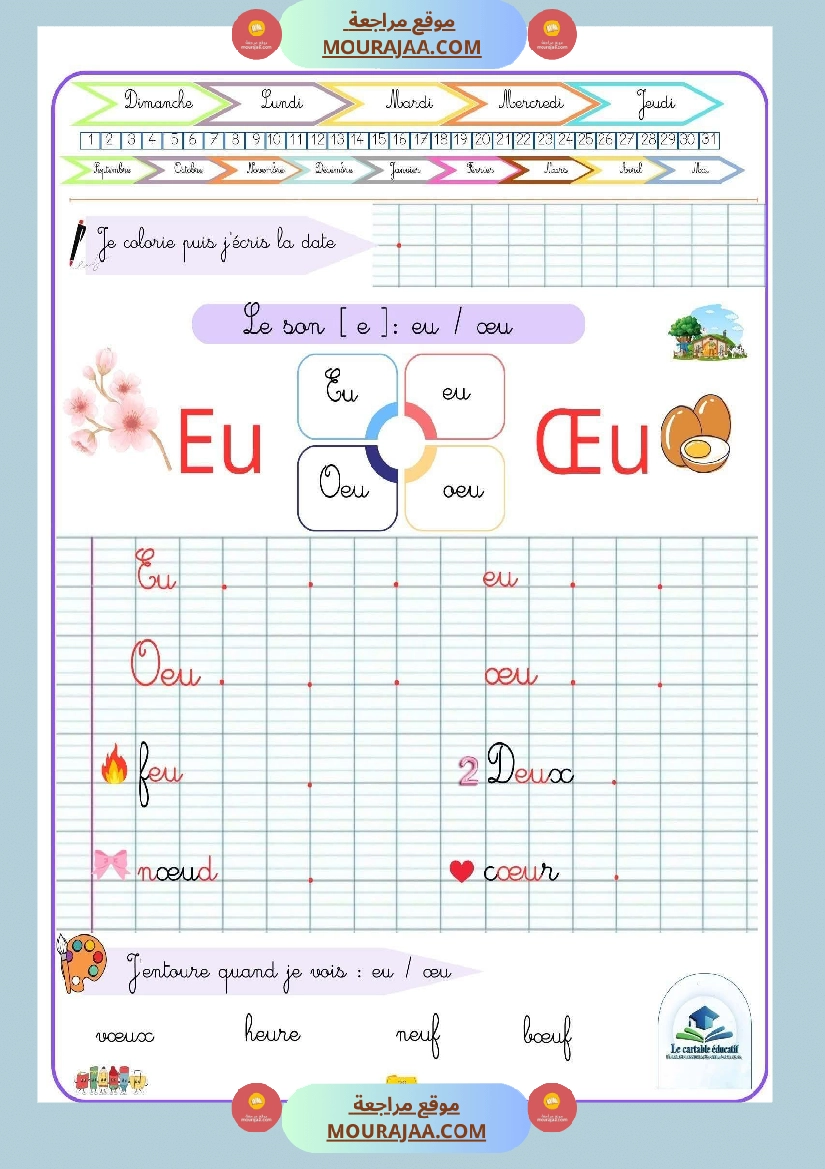 موقع مراجعة
MOURAJAA.COM
Dimanche Lundi Mardi Mercredi Jeudi
1 2 3 4 5 6 7 8 9 10 11 12 13 14 15 16 17 18 19 20 21 22 23 24 25 26 27 28 29 30 31
Septembre Octobre Novembre Décembre Janvier Février Mars Avril Mai
Je colorie puis j'écris la date
Le son [ e ]: eu / œu
Eu eu
Eu Œu
Oeu oeu
Eu eu
Oeu œu
feu 2 Deux
nœud cœur
J'entoure quand je vois : eu / œu
vœux heure neuf bœuf
Le cartable éducatif
موقع مراجعة
MOURAJAA.COM